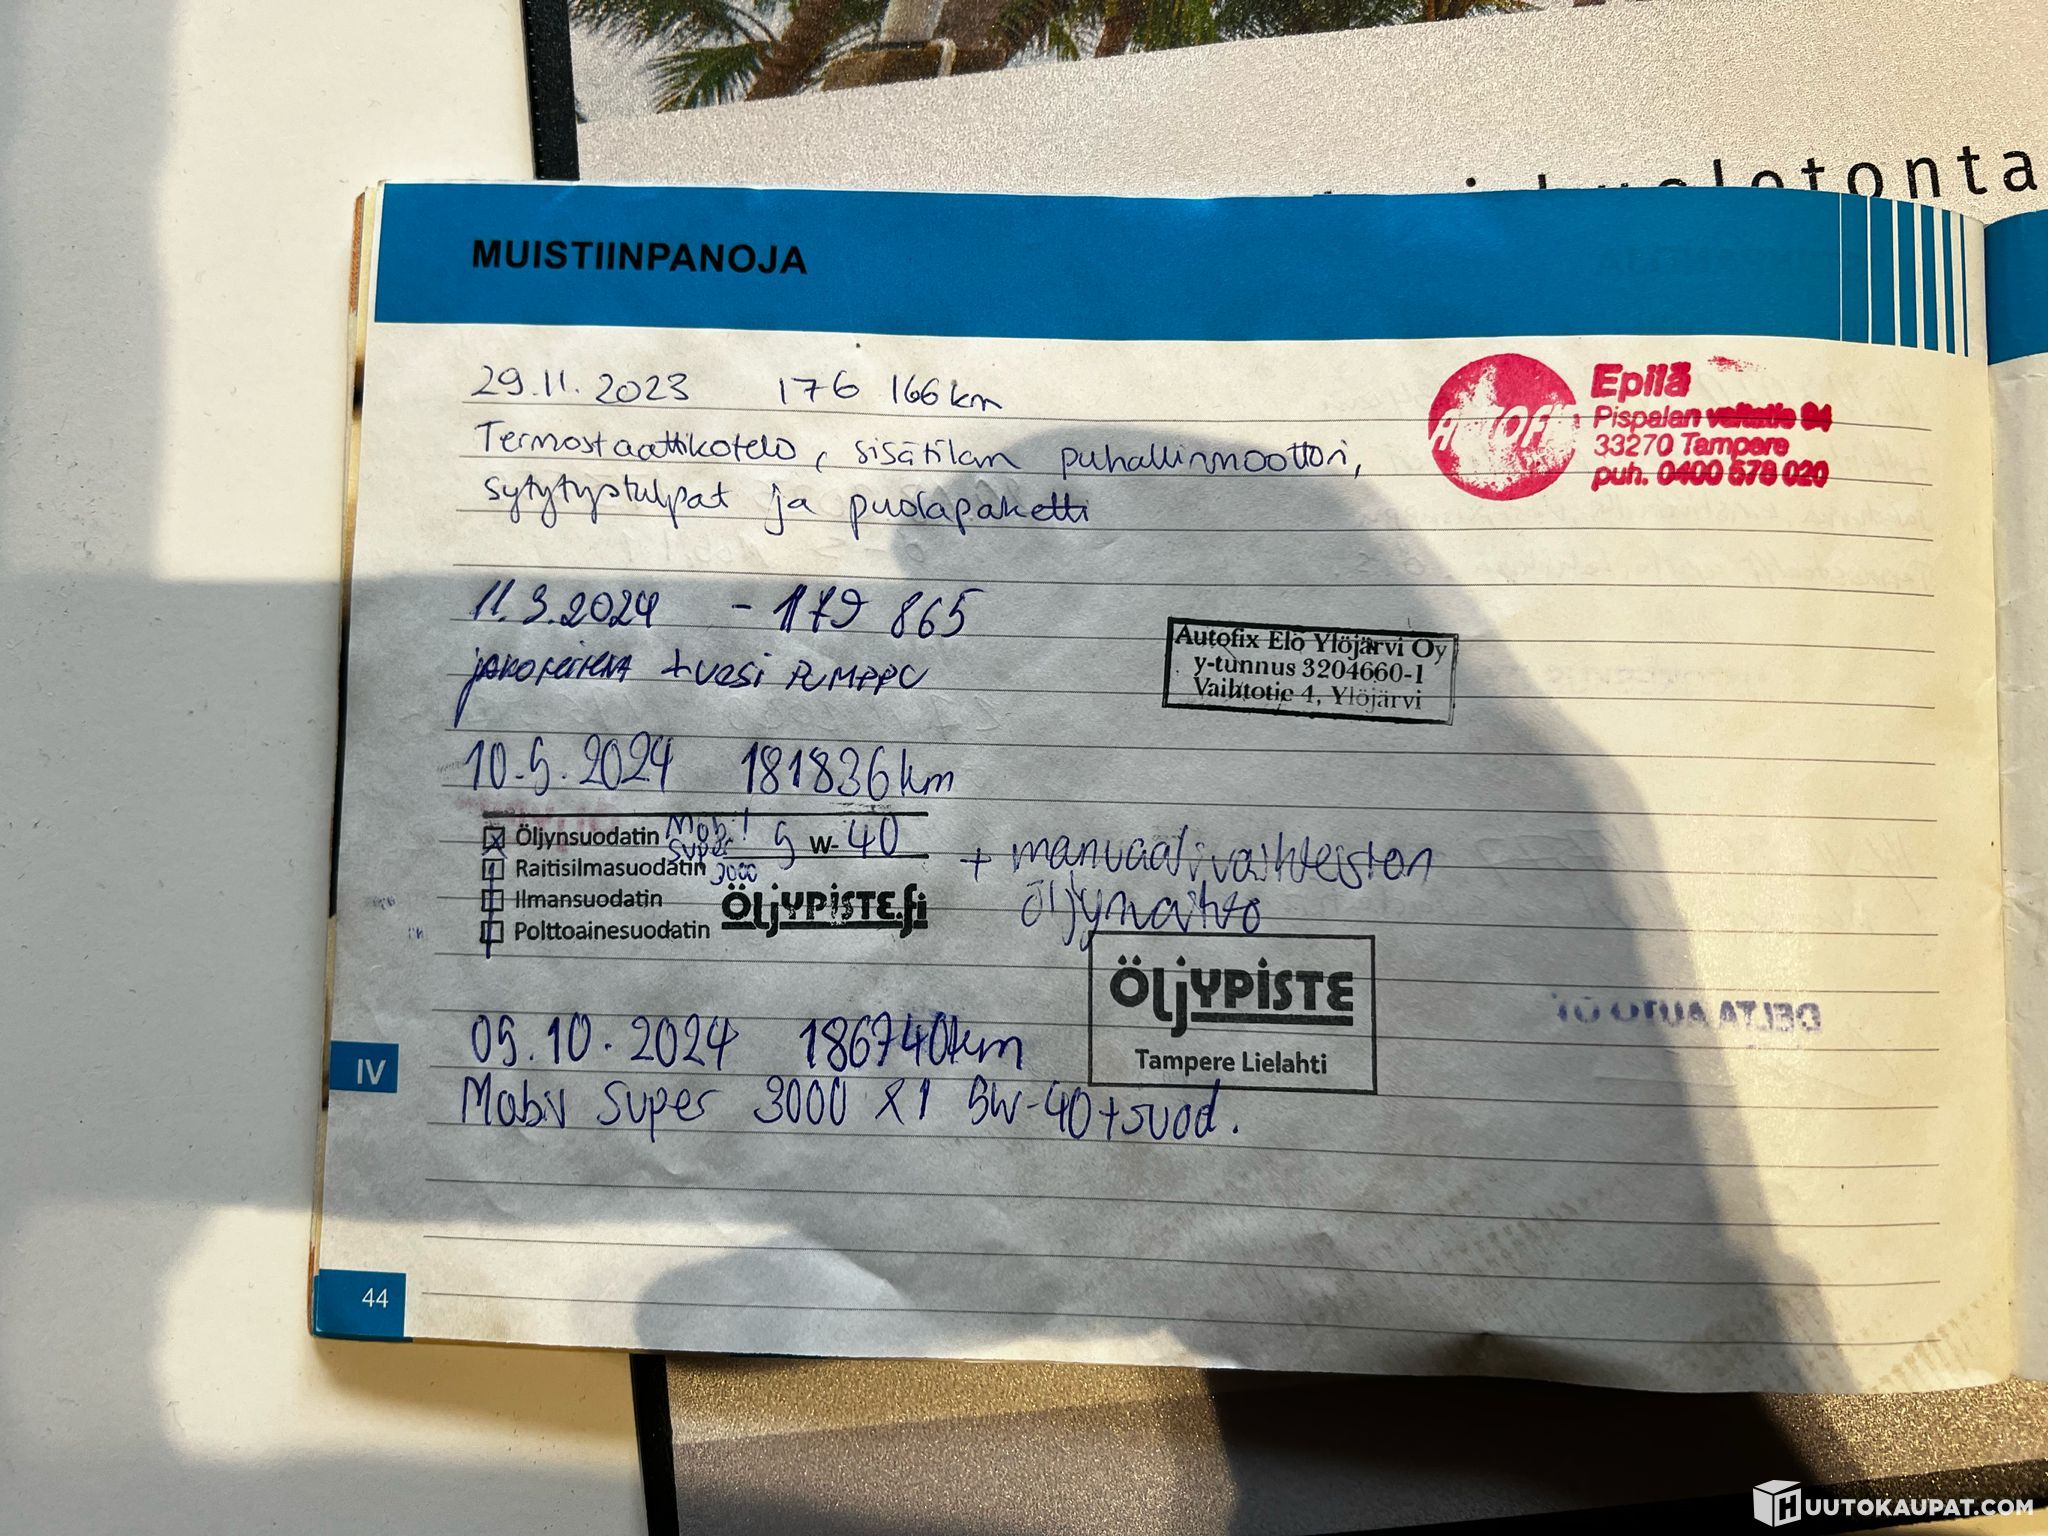 kuolotonta
MUISTIINPANOJA
29.11.2023 176 166 km
AUTOFIX
Epilä
Pispalan valtatie 94
33270 Tampere
puh. 0400 578 020
Termostaattikotelo, sisätilan puhallinmoottori,
sytytystulpat ja puolapaketti
11.3.2024 - 179 865
jakohihna + vesi PUMPPU
Autofix Elo Ylöjärvi Oy
y-tunnus 3204660-1
Vaihtotie 4, Ylöjärvi
10.5.2024 181836 km
Öljynsuodatin Mobil super 3000 5 W- 40
Raitisilmasuodatin
Ilmansuodatin
Polttoainesuodatin
ÖLJYPISTE.fi
+ manuaalivaihteiston
öljynvaihto
ÖLJYPISTE
Tampere Lielahti
DELTA AUTO OY
05.10.2024 186740km
Mobil super 3000 X1 5W-40+suod.
IV
44
HUUTOKAUPAT.COM